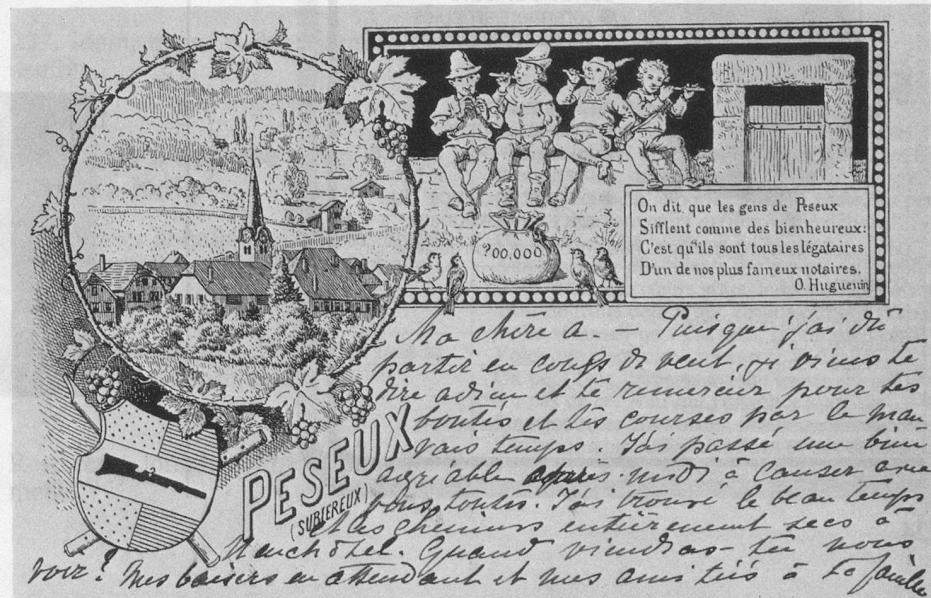 On dit que les gens de Peseux
Sifflent comme des bienheureux:
C'est qu'ils sont tous les légataires
D'un de nos plus fameux notaires.
O. Huguenin
?00,000
PESEUX
(SUBIEREUX)
Ma chère A. — Puisque j'ai dû
partir en coup de vent, je viens te
dire adieu et te remercier pour tes
bontés et tes courses par le mau
vais temps. J'ai passé une bien
agréable après-midi à causer avec
vous toutes. J'ai trouvé le beau temps
et les chemins entièrement secs à
Neuchâtel. Quand viendras-tu nous
voir? Mes baisers en attendant et mes amitiés à ta famille